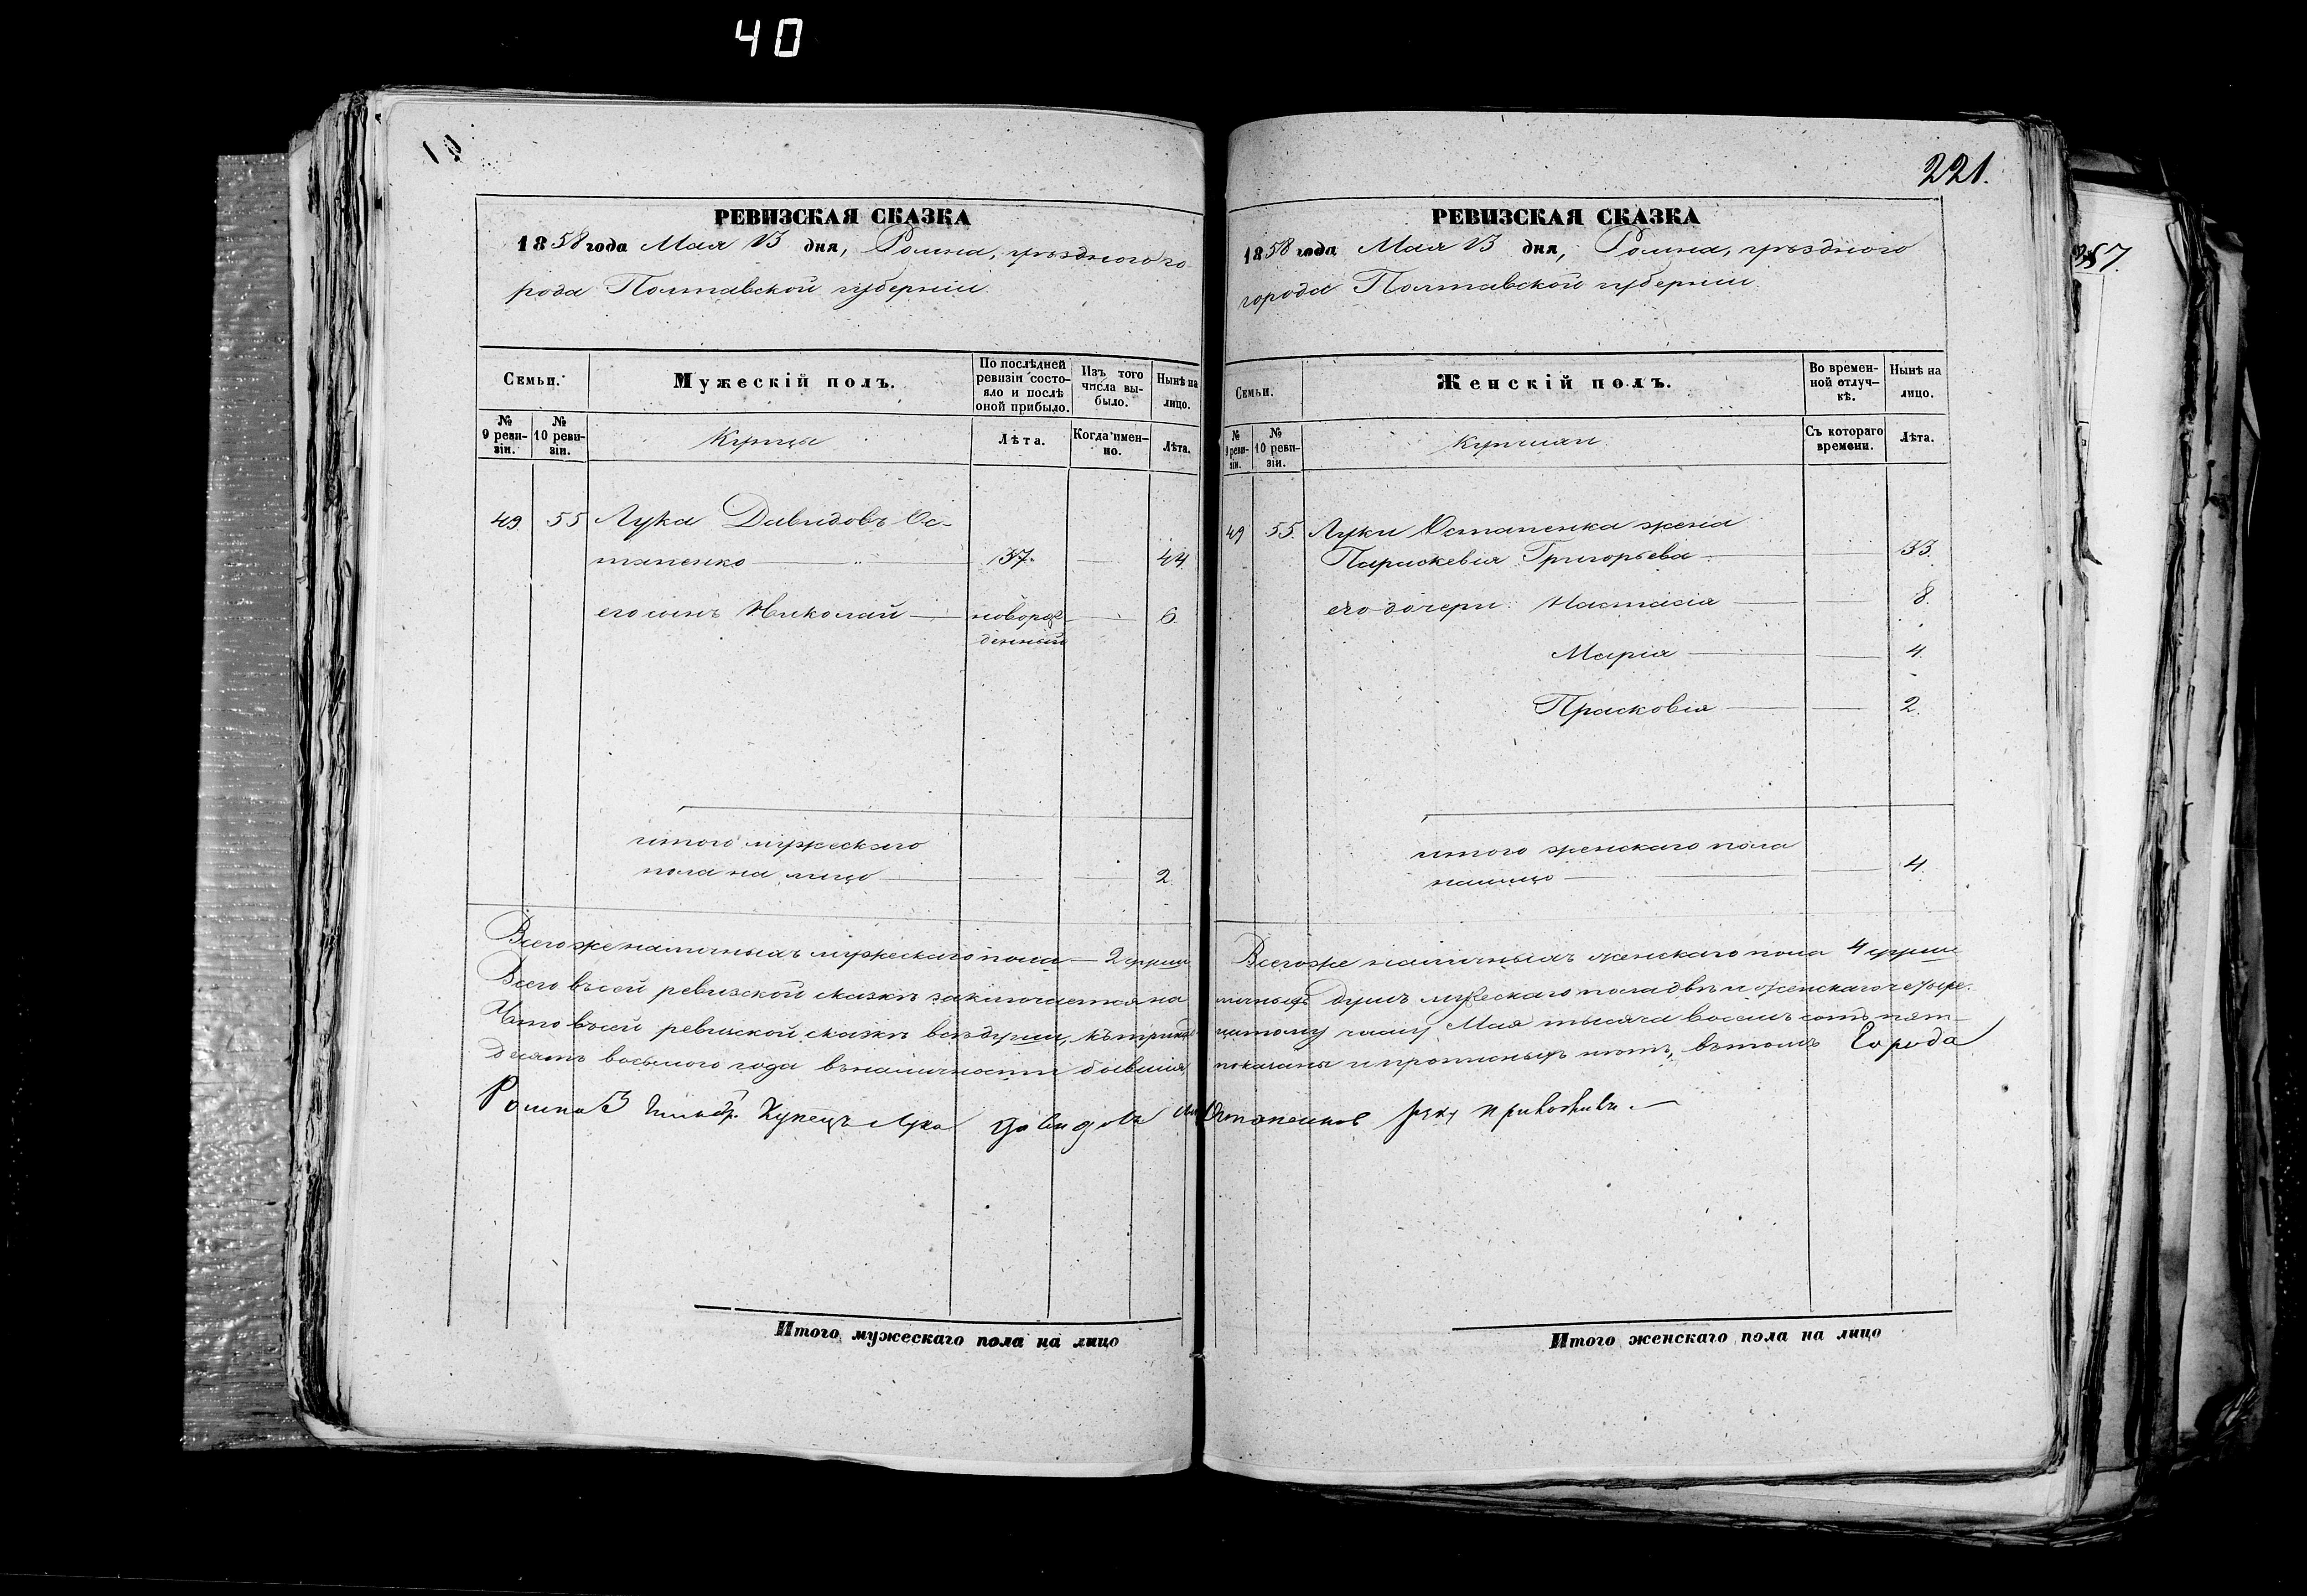 40
221.
РЕВИЗСКАЯ СКАЗКА
1858 года Мая 13 дня, Ромна, уѣзднаго го
рода Полтавской губерніи
Семьи.
Мужескій полъ.
По послѣдней ревизіи состояло и послѣ оной прибыло.
Изъ того числа выбыло.
Нынѣ на лицо.
№ 9 ревизіи.
№ 10 ревизіи.
Купцы
Лѣта.
Когда именно.
Лѣта.
49 55 Лука Давидовъ Ос-
тапенко 37. 44
его сынъ Николай новорож- 6.
денный
итого мужескаго
пола на лицо 2
Всего же наличныхъ мужескаго пола — 2 души
РЕВИЗСКАЯ СКАЗКА
1858 года Мая 13 дня, Ромна, уѣзднаго
города Полтавской губерніи
Семьи.
Женскій полъ.
Во временной отлучкѣ.
Нынѣ на лицо.
№ 9 ревизіи.
№ 10 ревизіи.
Купчихи
Съ котораго времени.
Лѣта.
49 55. Луки Остапенка жена
Параскевія Григорьева 33.
его дочери: Настасія 8.
Марія 4.
Прасковія 2.
итого женскаго пола
на лицо 4.
Всего же наличныхъ женскаго пола 4 души
Всего въ сей ревизской сказкѣ заключается на личныхъ душъ мужескаго пола двѣ и женскаго четыре.
Что въ сей ревизской сказкѣ всѣ души, къ тринад цатому числу Мая тысяча восемь сотъ пять-
десятъ восьмого года въ наличности бывшія, показаны и прописныхъ нѣтъ, въ томъ Города
Ромна 3 гильд. Купецъ Лука Давидовъ Остапенко руку приложилъ. —
Итого мужескаго пола на лицо
Итого женскаго пола на лицо